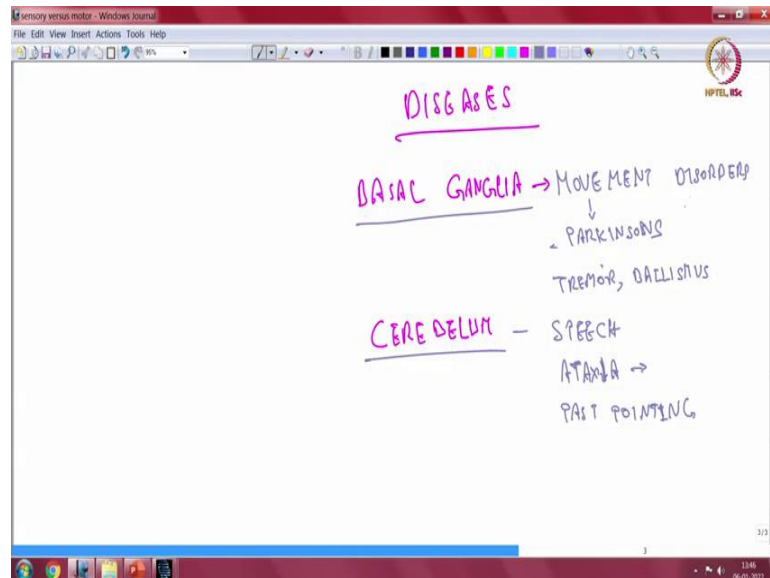 sensory versus motor - Windows Journal
File Edit View Insert Actions Tools Help
95%
B I
NPTEL, IISc
DISEASES
BASAL GANGLIA → MOVEMENT DISORDERS
↓
PARKINSONS
TREMOR, BALLISMUS
CEREBELUM - SPEECH
ATAXIA →
PAST POINTING
3/3
3
13:46
06-01-2022